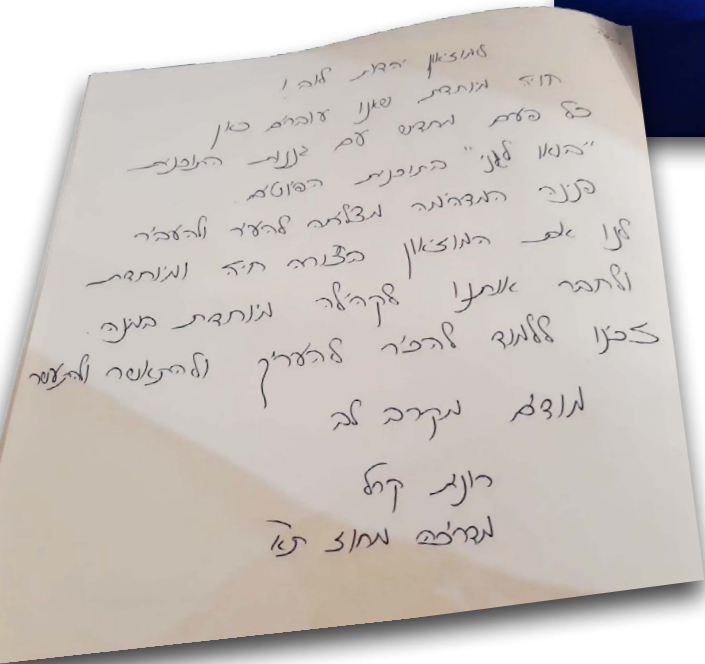 למוזיאון יהדות לוב!
חויה מיוחדת שאנו עוברים כאן
כל פעם מחדש עם גננות התוכנית
"בואו לגני" התוכנית הפיוטים.
פנינה המדהימה מצליחה להעיר ולהעביר
לנו את המוזיאון בצורה חיה ומיוחדת
ולחבר אותנו לקהילה מיוחדת במינה.
זכינו ללמוד להכיר להעריך ולהתאשר ולהתעשר
מודים מקרב לב
רונית קרל
מדריכה מחוז ת"א